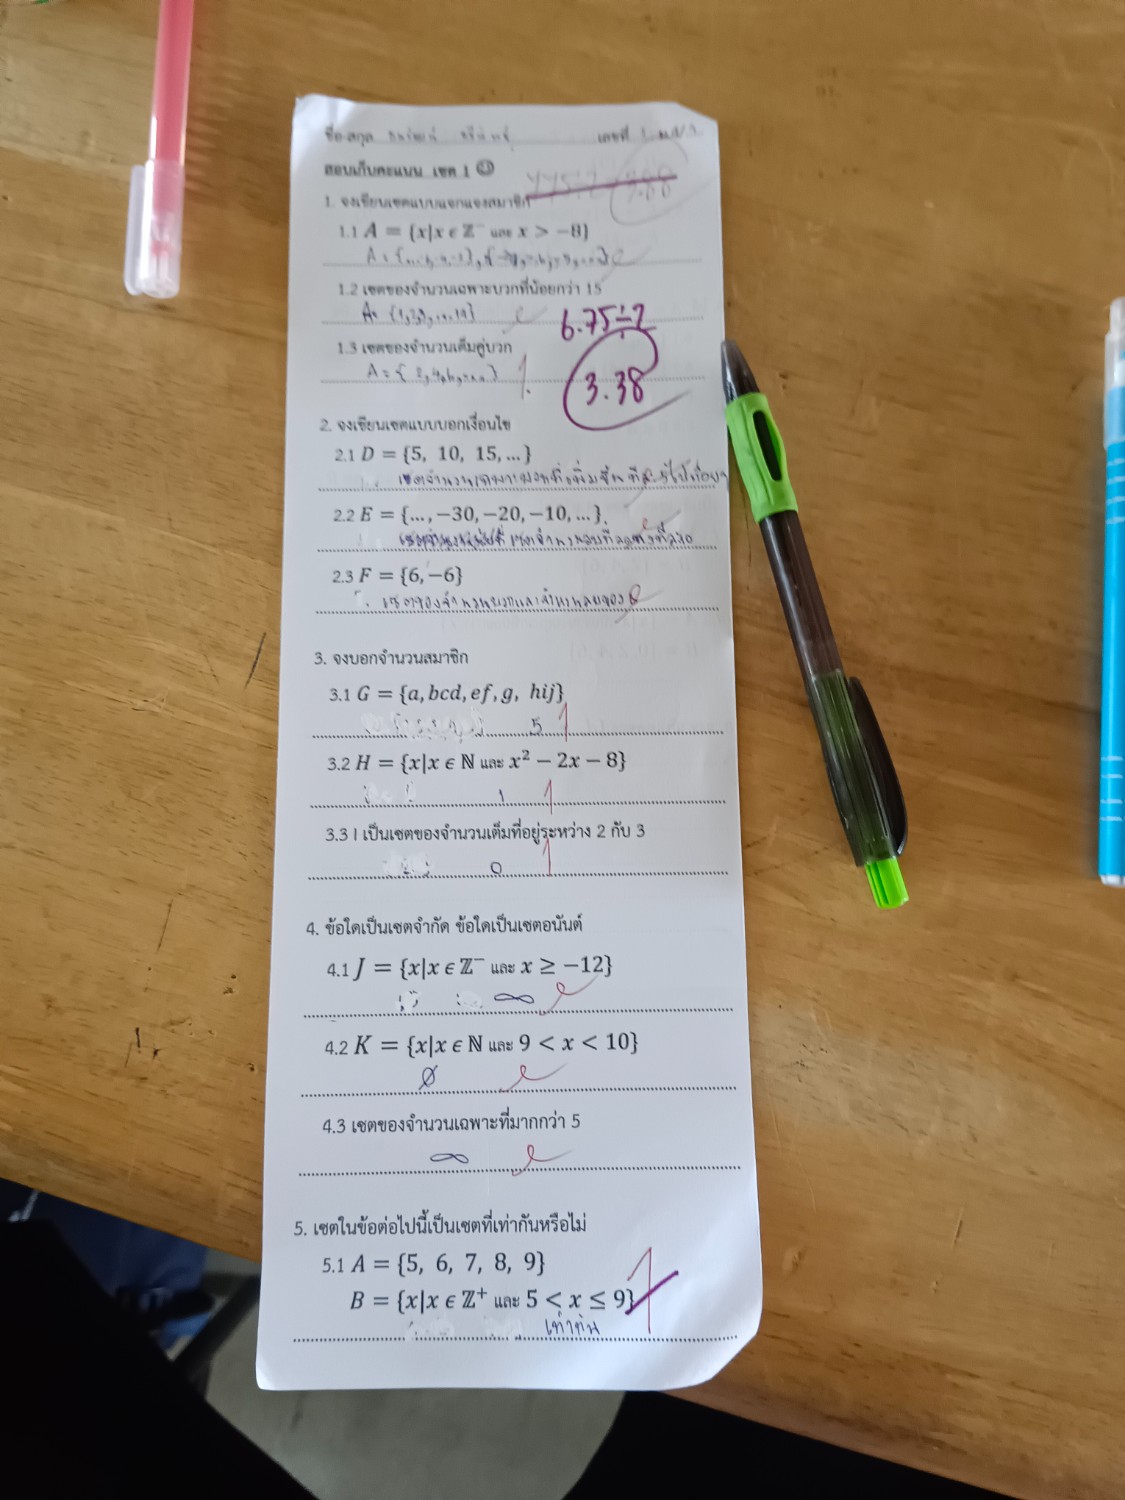 ชื่อ-สกุล เลขที่ 1
สอบเก็บคะแนน เซต 1
1. จงเขียนเซตแบบแจกแจงสมาชิก
1.1 A = {x|x ϵ ℤ⁻ และ x > −8}
1.2 เซตของจำนวนเฉพาะบวกที่น้อยกว่า 15
6.75÷2
1.3 เซตของจำนวนเต็มคู่บวก
3.38
A = { 2, 4, 6, ... } 1
2. จงเขียนเซตแบบบอกเงื่อนไข
2.1 D = {5, 10, 15, ...}
2.2 E = {..., −30, −20, −10, ...}
2.3 F = {6, −6}
เซตของจำนวนบวกและจำนวนลบของ 6
3. จงบอกจำนวนสมาชิก
3.1 G = {a, bcd, ef, g, hij}
5 1
3.2 H = {x|x ϵ ℕ และ x² − 2x − 8}
1 1
3.3 I เป็นเซตของจำนวนเต็มที่อยู่ระหว่าง 2 กับ 3
0 1
4. ข้อใดเป็นเซตจำกัด ข้อใดเป็นเซตอนันต์
4.1 J = {x|x ϵ ℤ⁻ และ x ≥ −12}
∞
4.2 K = {x|x ϵ ℕ และ 9 < x < 10}
∅
4.3 เซตของจำนวนเฉพาะที่มากกว่า 5
∞
5. เซตในข้อต่อไปนี้เป็นเซตที่เท่ากันหรือไม่
5.1 A = {5, 6, 7, 8, 9}
B = {x|x ϵ ℤ⁺ และ 5 < x ≤ 9}
เท่ากัน